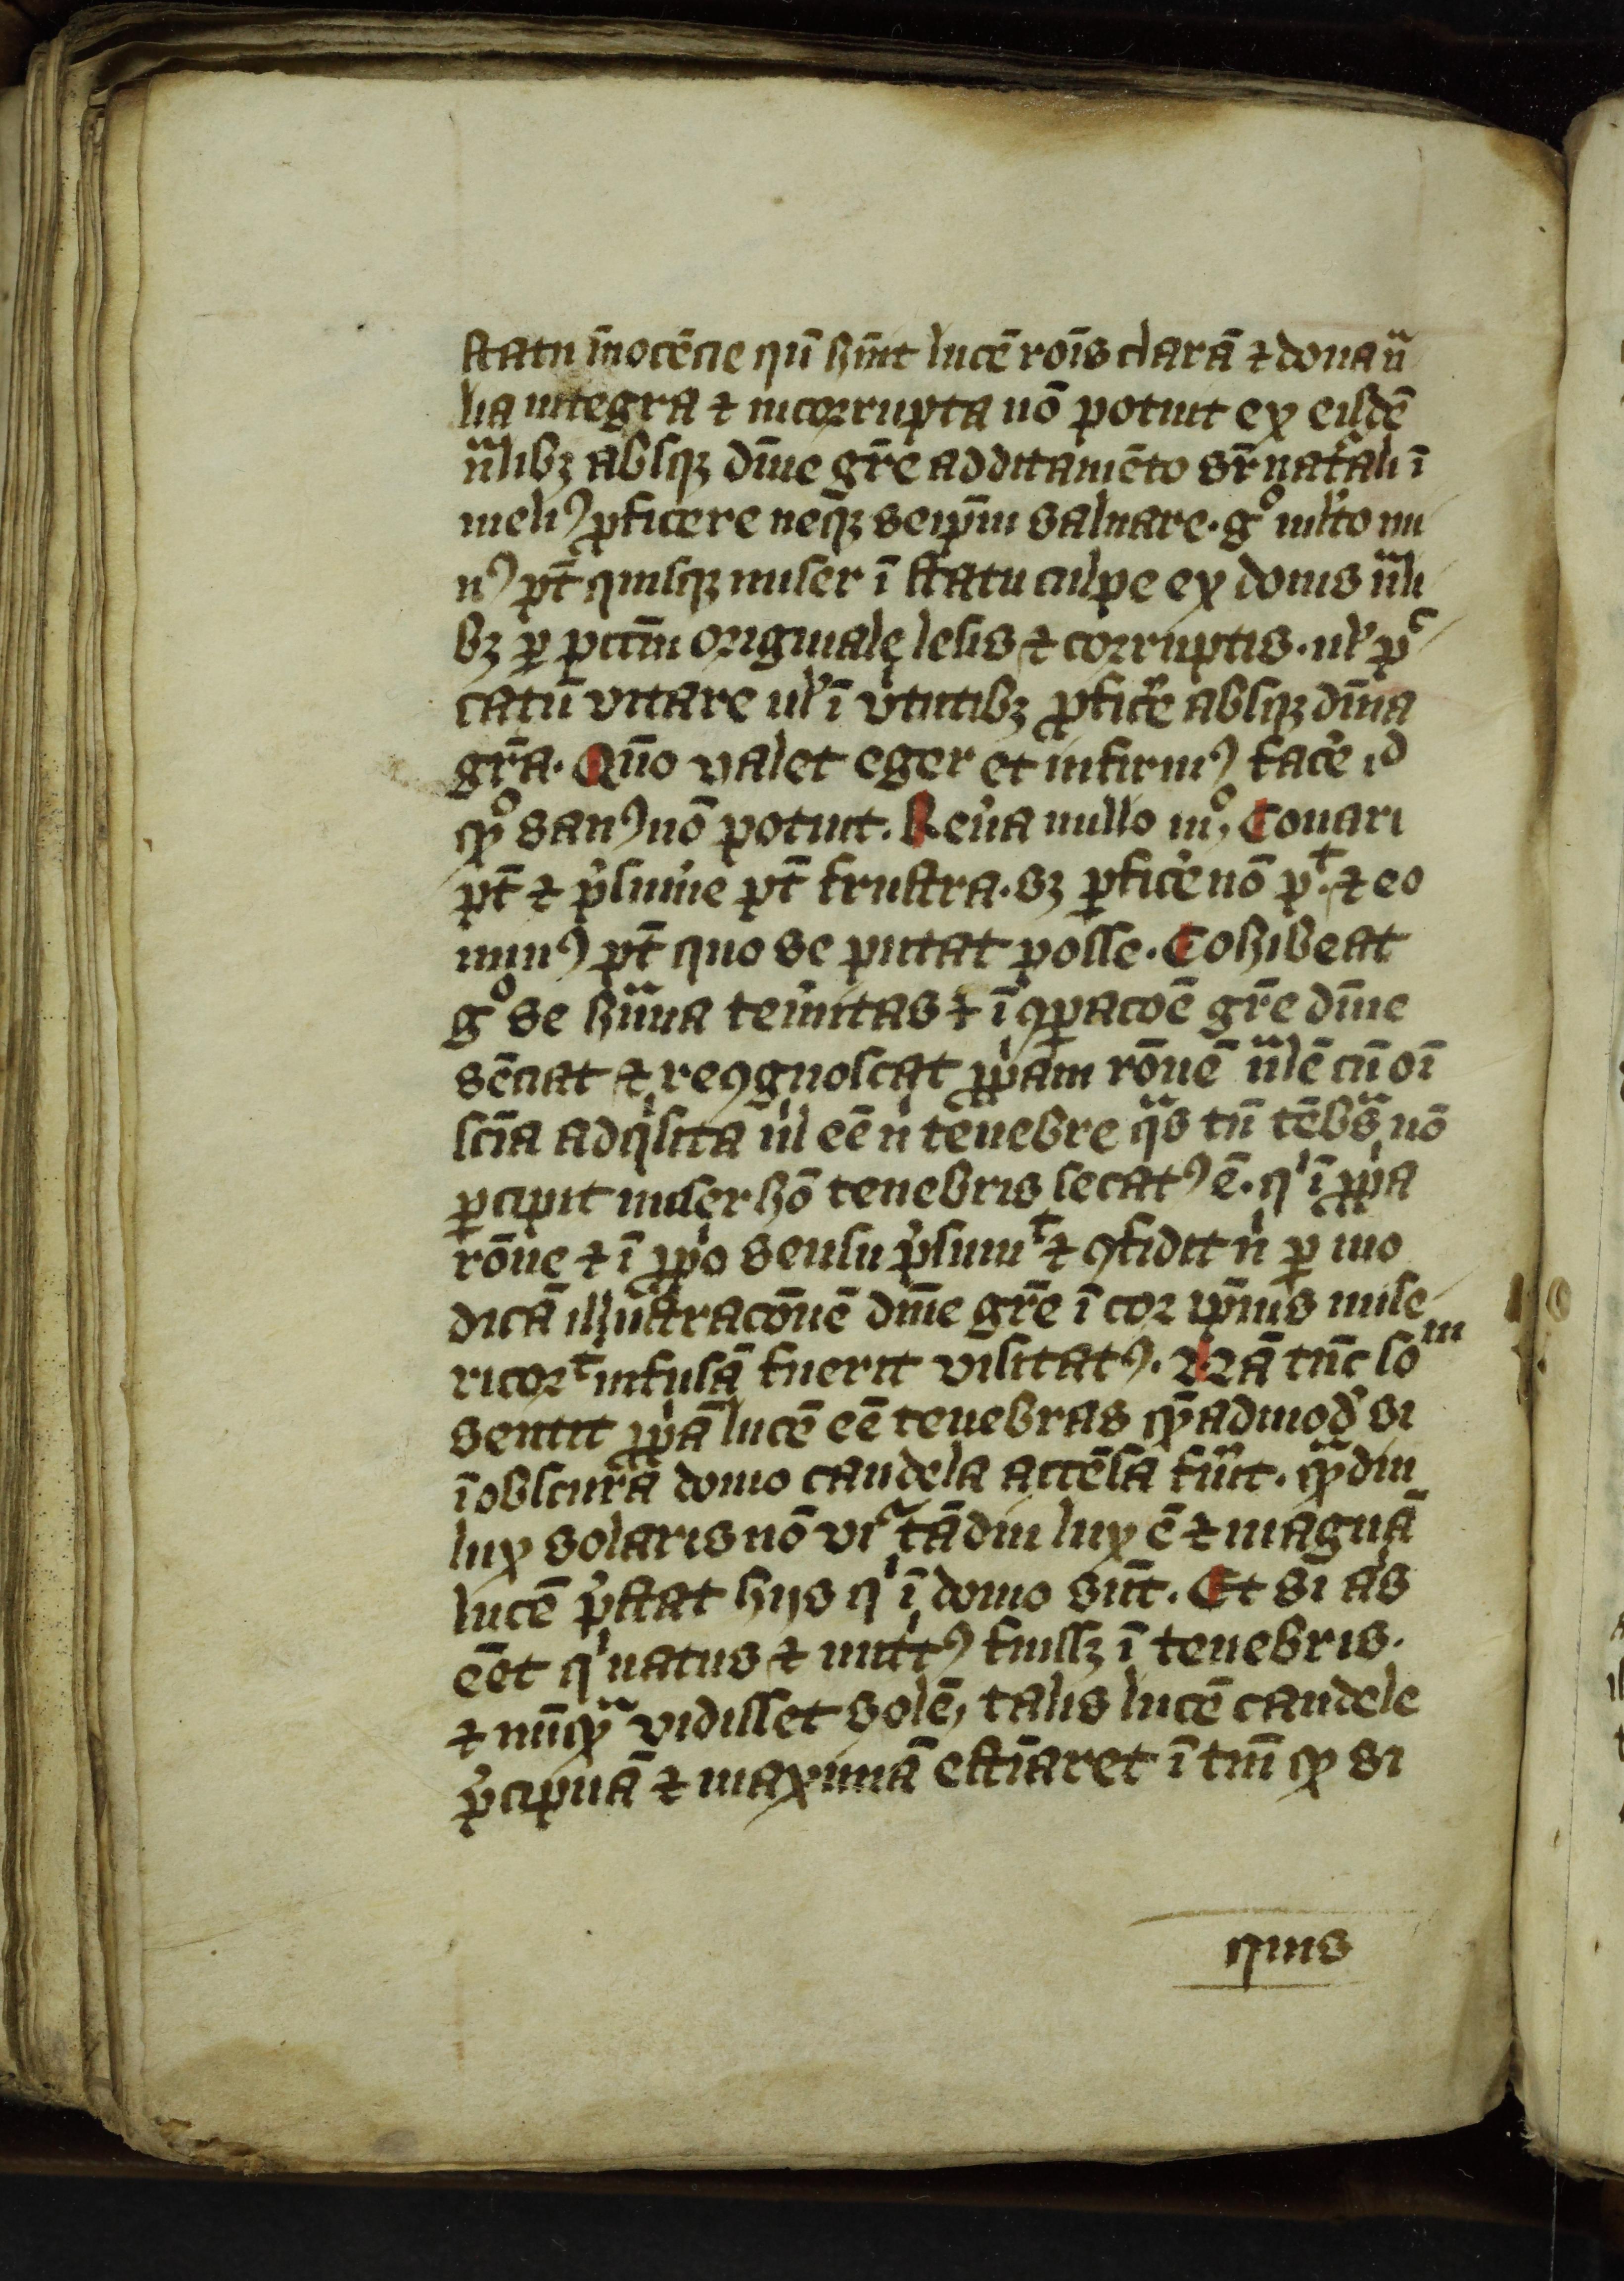 statu īnocēcie qn̄ hūit lucē rōis clarā ⁊ dona nͣ
lia integra ⁊ incorrupta nō potuit ex eisdē
nͣlibꝫ absqꝫ dīne gr̄e additamēto sr̄nat͛ali ī
meliꝰ ꝓficere neqꝫ seip̄m saluare. gͦ ml̓to mi
nꝰ pt̄ quisqꝫ miser ī statu culpe ex donis nͣli
bꝫ ꝑ pctm̄ originale lesis ⁊ corruptis. ul̓ pͨ
catū vitare ul̓ ī v̓tutibꝫ ꝓfic̓e absqꝫ dīna
gr̄a. Qūo valet eger et infirmꝰ fac̓e id
qͦ sanꝰ nō potuit. Reu̓a nullo mͦ. Conari
pt̄ ⁊ p̓sum̓e pt̄ frustra. sꝫ ꝓfic̓e nō pᵗ. ⁊ eo
minꝰ pt̄ quo se putat posse. Cohibeat
gͦ se hūana tem̓itas ⁊ ī ꝯꝑacōe gr̄e dīne
sēciat ⁊ reꝯgnoscat ꝓpͥam rōnē nͣlē cū oī
scīa adqͥsita ul̓ eē nͥ tenebre qͣs tn̄ tēbͣs nō
ꝑcipit miser hō tenebris secatꝰ ē. qͥ ī ꝓpͥa
rōne ⁊ ī ꝓpͥo sensu p̓sumᵗ ⁊ ꝯfidit nͥ ꝑ mo
dicā illustracōnē dīne gr̄e ī cor ip̄ius mise
ricorᵗ infusā fuerit visitatꝰ. Nā tūc soᵐ
sentit ꝓpͥā lucē eē tenebras qͤadmodū si
ī obscura domo candela accēsa fūit. qͣdiu
lux solaris nō vrͬ tādiu lux ē ⁊ magnā
lucē p̓stat hijs qͥ ī domo sūt. Et si as
eēt qͥ natus ⁊ nutͥtꝰ fuissꝫ ī tenebris.
⁊ nūqͣ vidisset solē, talis lucē candele
p̓cipuā ⁊ maximā estīaret ī tm̄ qꝫ si
quis